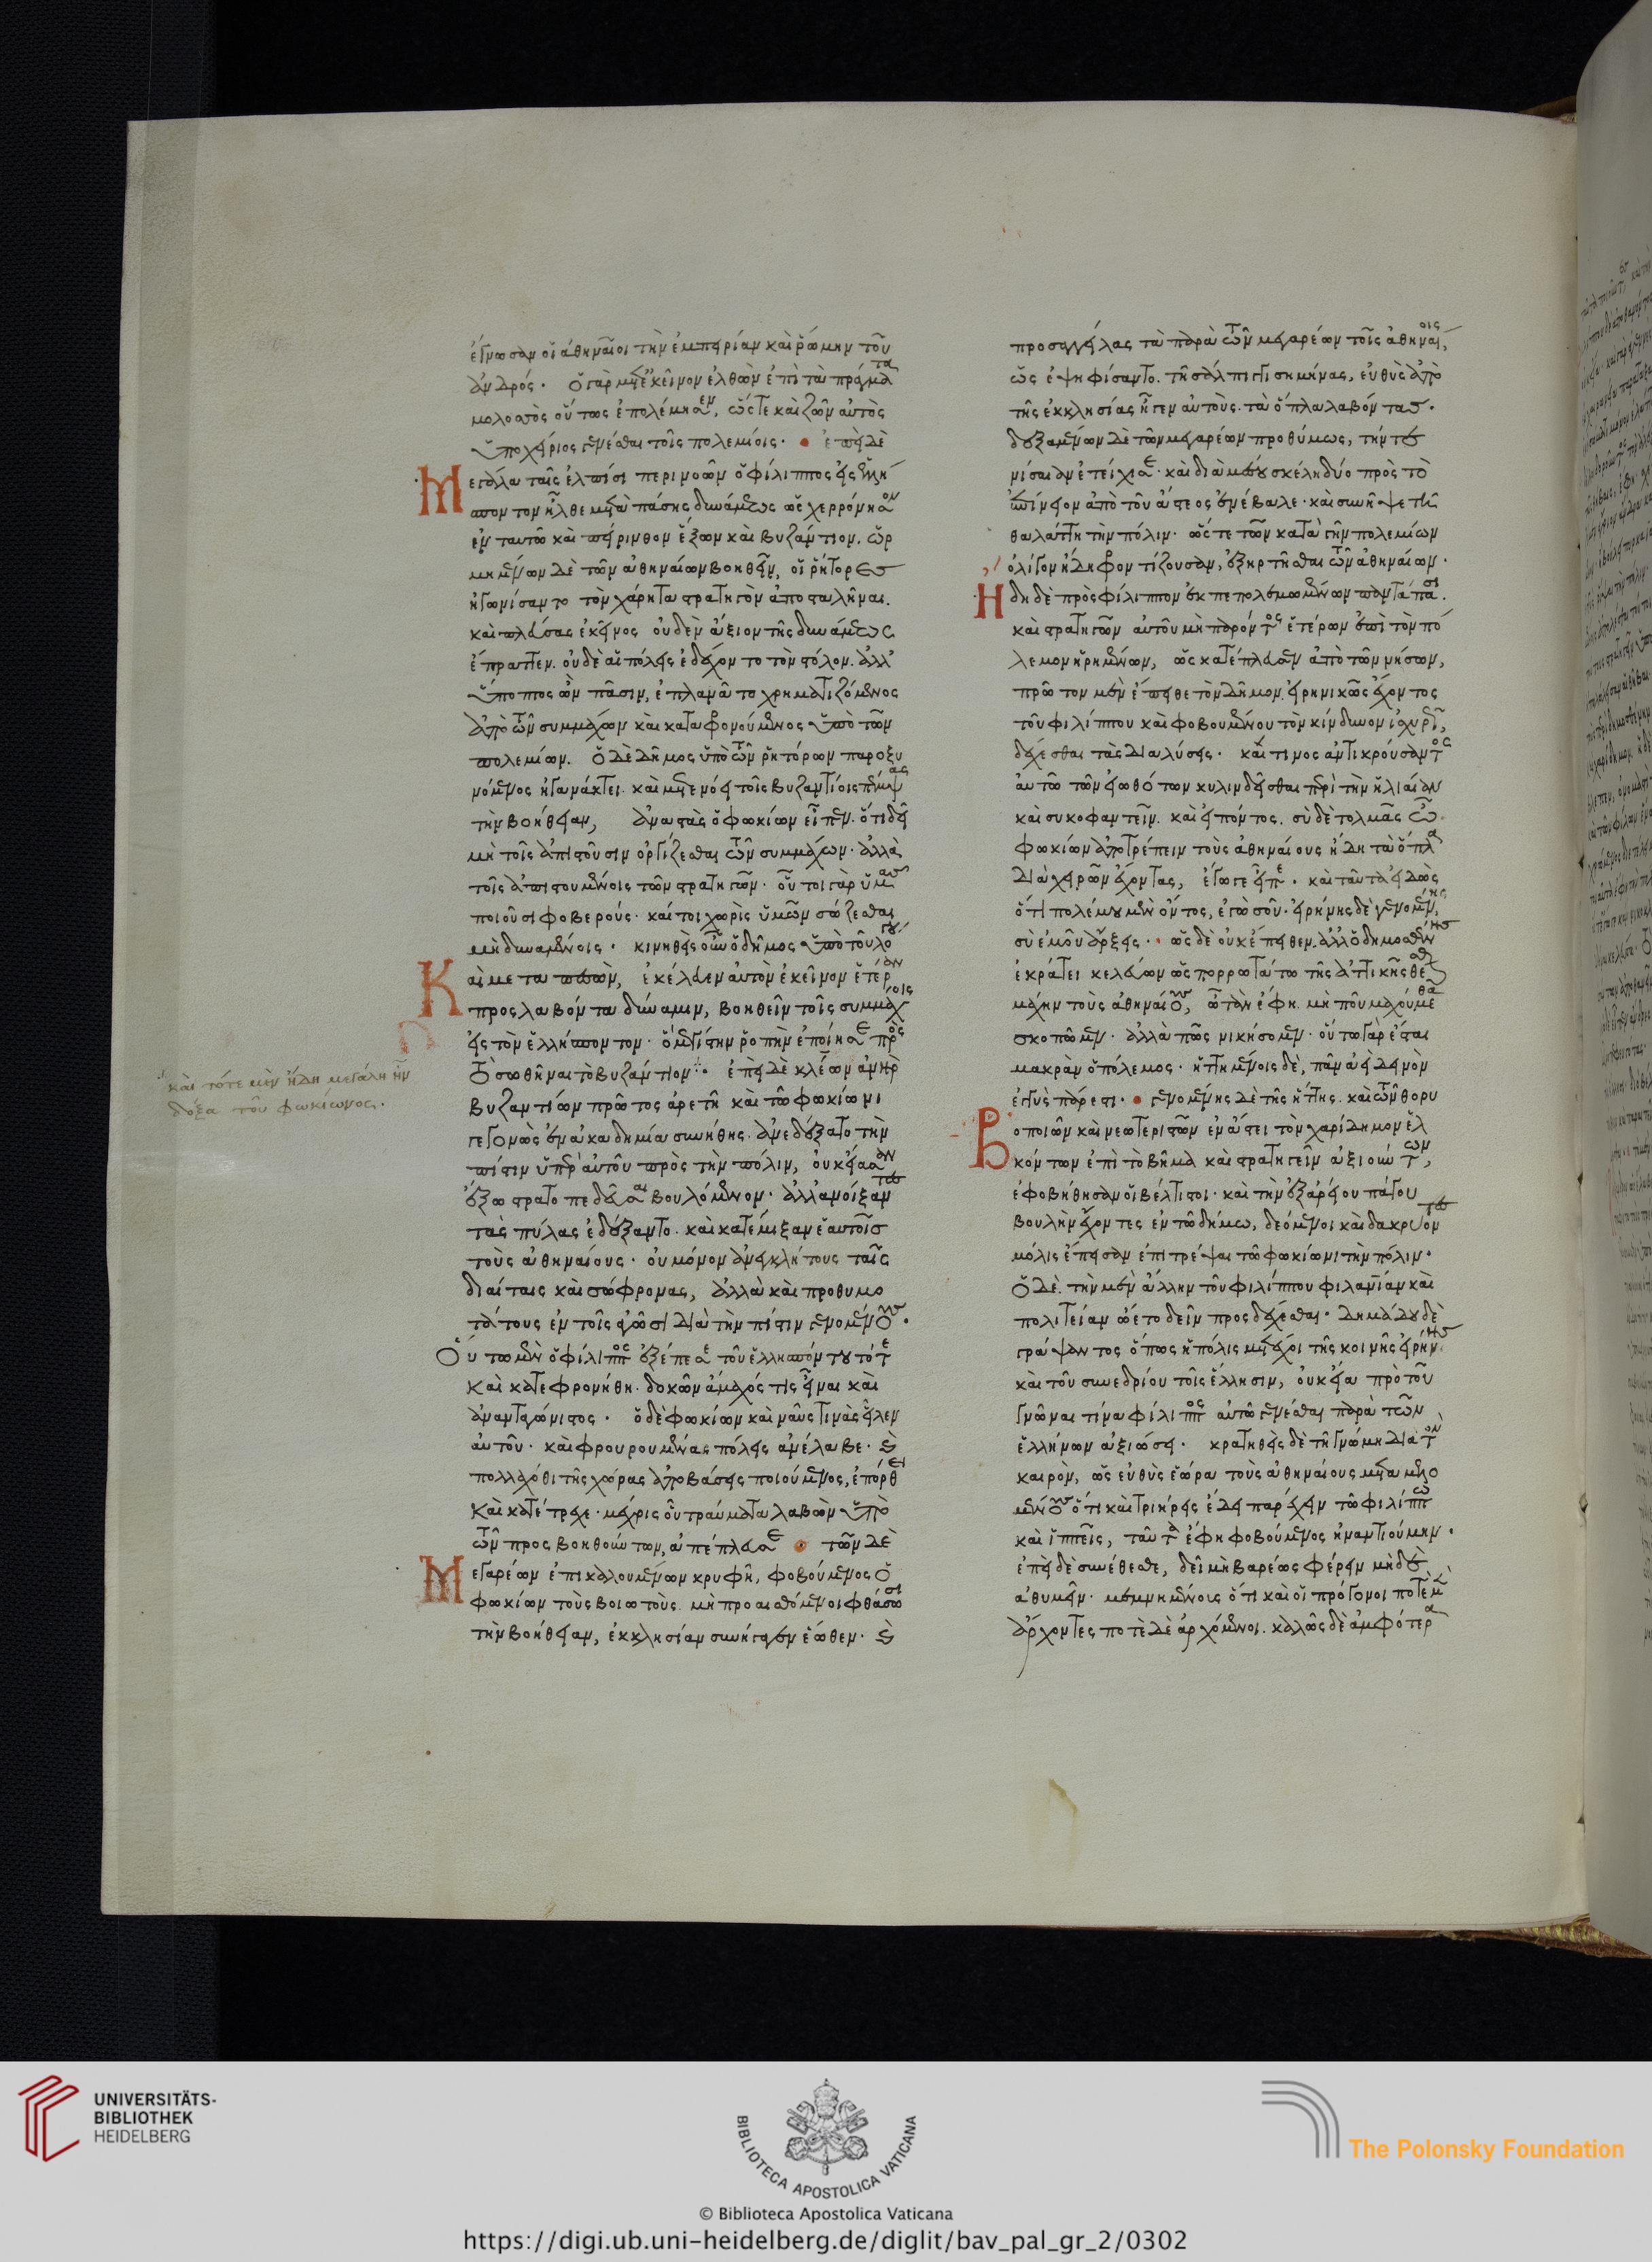 ἔγνωσαν οἱ ἀθηναῖοι τὴν ἐμπειρίαν καὶ ῥώμην τοῦ
ἀνδρός. ὁ γὰρ μετ' ἐκεῖνον ἐλθὼν ἐπὶ τὰ πράγματα
μολοσσὸς οὕτως ἐπολέμησεν, ὥστε καὶ ζῶν αὐτὸς
ὑποχείριος γενέσθαι τοῖς πολεμίοις· ἐπεὶ δὲ
Μεγάλα ταῖς ἐλπίσι περινοῶν ὁ φίλιππος εἰς ἑλλή
σποντον ἦλθε μετὰ πάσης δυνάμεως ὡς χερρόνησον
ἐν ταυτῶ καὶ πέρινθον ἕξων καὶ βυζάντιον. ὡρ
μημένων δὲ τῶν ἀθηναίων βοηθεῖν, οἱ ῥήτορες
ἠγωνίσαντο τὸν χάρητα στρατηγὸν ἀποσταλῆναι.
καὶ πλεύσας ἐκεῖνος οὐδὲν ἄξιον τῆς δυνάμεως
ἔπραττεν. οὐδὲ αἱ πόλεις ἐδέχοντο τὸν στόλον. ἀλλ'
ὕποπτος ὢν πᾶσιν, ἐπλανᾶτο χρηματιζόμενος
ἀπὸ τῶν συμμάχων καὶ καταφρονούμενος ὑπὸ τῶν
πολεμίων. ὁ δὲ δῆμος ὑπὸ τῶν ῥητόρων παροξυ
νόμενος ἠγανάκτει καὶ μετενόει τοῖς βυζαντίοις πέμψας
τὴν βοήθειαν, ἀναστὰς ὁ φωκίων εἶπεν. ὅτι δεῖ
μὴ τοῖς ἀπιστοῦσιν ὀργίζεσθαι τῶν συμμάχων· ἀλλὰ
τοῖς ἀπιστουμένοις τῶν στρατηγῶν· οὗτοι γὰρ ὑμᾶς
ποιοῦσι φοβερούς· καίτοι χωρὶς ὑμῶν σώζεσθαι
μὴ δυναμένοις· κινηθεὶς οὖν ὁ δῆμος ὑπὸ τοῦ λόγου
Καὶ μεταπεσὼν, ἐκέλευεν αὐτὸν ἐκεῖνον ἑτέραν
προσλαβόντα δύναμιν, βοηθεῖν τοῖς συμμάχοις
εἰς τὸν ἑλλήσποντον· ὃ μεγίστην ῥοπὴν ἐποίησε πρὸς
τὸ σωθῆναι τὸ βυζάντιον· ἐπεὶ δὲ κλέων ἀνὴρ
βυζαντίων πρῶτος ἀρετῆ καὶ τῶ φωκίωνι
γεγονὼς ἐν ἀκαδημία συνήθης· ἀνεδέξατο τὴν
πίστιν ὑπὲρ αὐτοῦ πρὸς τὴν πόλιν, οὐκ εἴασαν
ἔξω στρατοπεδεῦσαι βουλόμενον· ἀλλ' ἀνοίξαντες
τὰς πύλας ἐδέξαντο· καὶ κατέμιξαν ἑαυτοῖς
τοὺς ἀθηναίους· οὐ μόνον ἀνεγκλήτους ταῖς
διαίταις καὶ σώφρονας, ἀλλὰ καὶ προθυμο
τάτους ἐν τοῖς ἀγῶσι διὰ τὴν πίστιν γενομένους.
Οὕτω μὲν ὁ φίλιππος ἐξέπεσε τοῦ ἑλλησπόντου τότε
καὶ κατεφρονήθη· δοκῶν ἄμαχός τις εἶναι καὶ
ἀνανταγώνιστος· ὁ δὲ φωκίων καὶ ναῦς τινὰς εἷλεν
αὐτοῦ· καὶ φρουρουμένας πόλεις ἀνέλαβε· καὶ
πολλαχόθι τῆς χώρας ἀποβάσεις ποιούμενος, ἐπόρθει
καὶ κατέτρεχε· μέχρις οὗ τραύματα λαβὼν ὑπὸ
τῶν προσβοηθούντων, ἀπέπλευσε τῶν δὲ
Μεγαρέων ἐπικαλουμένων κρυφῆ, φοβούμενος ὁ
φωκίων τοὺς βοιωτοὺς μὴ προαισθόμενοι φθάσωσι
τὴν βοήθειαν, ἐκκλησίαν συνήγαγεν ἕωθεν· καὶ
καὶ τότε μὲν ἤδη μεγάλη ἦν
δόξα τοῦ φωκίωνος.
προσαγγείλας τὰ παρὰ τῶν μεγαρέων τοῖς ἀθηναίοις,
ὡς ἐψηφίσαντο. τῆ σάλπιγγι σημήνας, εὐθὺς ἀπὸ
τῆς ἐκκλησίας ἦγεν αὐτοὺς· τὰ ὅπλα λαβόντας.
δεξαμένων δὲ τῶν μεγαρέων προθύμως, τήν τε
νίσαιαν ἐτείχισε· καὶ διὰ μέσου σκέλη δύο πρὸς τὸ
ἐπίνειον ἀπὸ τοῦ ἄστεος ἐνέβαλε· καὶ συνῆψε τῆ
θαλάττη τὴν πόλιν· ὥστε τῶν κατὰ γῆν πολεμίων
ὀλίγον ἤδη φοντίζουσαν, ἐξηρτῆσθαι τῶν ἀθηναίων.
Ηδη δὲ πρὸς φίλιππον ἐκπεπολεμωμένων παντάπασι.
καὶ στρατηγῶν αὐτοῦ μὴ παρόντος ἑτέρων ἐπὶ τὸν πό
λεμον ἡρημένων, ὡς κατέπλευσεν ἀπὸ τῶν νήσων,
πρῶτον μὲν ἔπειθε τὸν δῆμον. εἰρηνικῶς ἔχοντος
τοῦ φιλίππου καὶ φοβουμένου τὸν κίνδυνον ἰσχυρῶς,
δέχεσθαι τὰς διαλύσεις· καί τινος ἀντικρούσαντος
αὐτῶ τῶν εἰωθότων κυλινδεῖσθαι περὶ τὴν ἡλιαίαν
καὶ συκοφαντεῖν. καὶ εἰπόντος. σὺ δὲ τολμᾶς ὦ
φωκίων ἀποτρέπειν τοὺς ἀθηναίους ἤδη τὰ ὅπλα
διὰ χειρῶν ἔχοντας, ἔγωγε εἶπε· καὶ ταῦτα εἰδὼς
ὅτι πολέμου μὲν ὄντος, ἐγὼ σοῦ· εἰρήνης δὲ γενομένης,
σὺ ἐμοῦ ἄρξεις· ὡς δὲ οὐκ ἔπειθεν. ἀλλ' ὁ δημοσθένης
ἐκράτει κελεύων ὡς πορρωτάτω τῆς ἀττικῆς θέσθαι
μάχην τοὺς ἀθηναίους, ὦ τὰν ἔφη. μὴ ποῦ μαχούμεθα
σκοπῶμεν· ἀλλὰ πῶς νικήσομεν· οὕτω γὰρ ἔσται
μακρὰν ὁ πόλεμος· ἡττημένοις δὲ, πᾶν ἀεὶ δεινὸν
ἐγγὺς πάρεστι· γενομένης δὲ τῆς ἥττης· καὶ τῶν θορυ
Βοποιῶν καὶ νεωτεριστῶν ἐν ἄστει τὸν χαρίδημον ἑλ
κόντων ἐπὶ τὸ βῆμα καὶ στρατηγεῖν ἀξιούντων,
ἐφοβήθησαν οἱ βέλτιστοι· καὶ τὴν ἐξ ἀρείου πάγου
βουλὴν ἔχοντες ἐν τῶ δήμω, δεόμενοι καὶ δακρύοντες
μόλις ἔπεισαν ἐπιτρέψαι τῶ φωκίωνι τὴν πόλιν·
Ὁ δὲ. τὴν μὲν ἄλλην τοῦ φιλίππου φιλανίαν καὶ
πολιτείαν ὤετο δεῖν προσδέχεσθαι· δημάδου δὲ
γράψαντος ὅπως ἡ πόλις μετέχοι τῆς κοινῆς εἰρήνης
καὶ τοῦ συνεδρίου τοῖς ἕλλησιν, οὐκ εἴα πρὸ τοῦ
γνῶναι τίνα φίλιππος αὐτῶ γενέσθαι παρὰ τῶν
ἑλλήνων ἀξιώσει· κρατηθεὶς δὲ τῆ γνώμη διὰ τὸν
καιρὸν, ὡς εὐθὺς ἑώρα τοὺς ἀθηναίους μεταμελο
μένους ὅτι καὶ τριήρεις ἔδει παρέχειν τῶ φιλίππω
καὶ ἱππεῖς, ταῦτα ἔφη φοβούμενος ἠναντιούμην·
ἐπεὶ δὲ συνέθεσθε, δεῖ μὴ βαρέως φέρειν μηδὲ
ἀθυμεῖν· μεμνημένους ὅτι καὶ οἱ πρόγονοι ποτὲ μὲν
ἄρχοντες ποτὲ δὲ ἀρχόμενοι. καλῶς δὲ ἀμφότερα
UNIVERSITÄTS-
BIBLIOTHEK
HEIDELBERG
BIBLIOTECA APOSTOLICA VATICANA
The Polonsky Foundation
© Biblioteca Apostolica Vaticana
https://digi.ub.uni-heidelberg.de/diglit/bav_pal_gr_2/0302